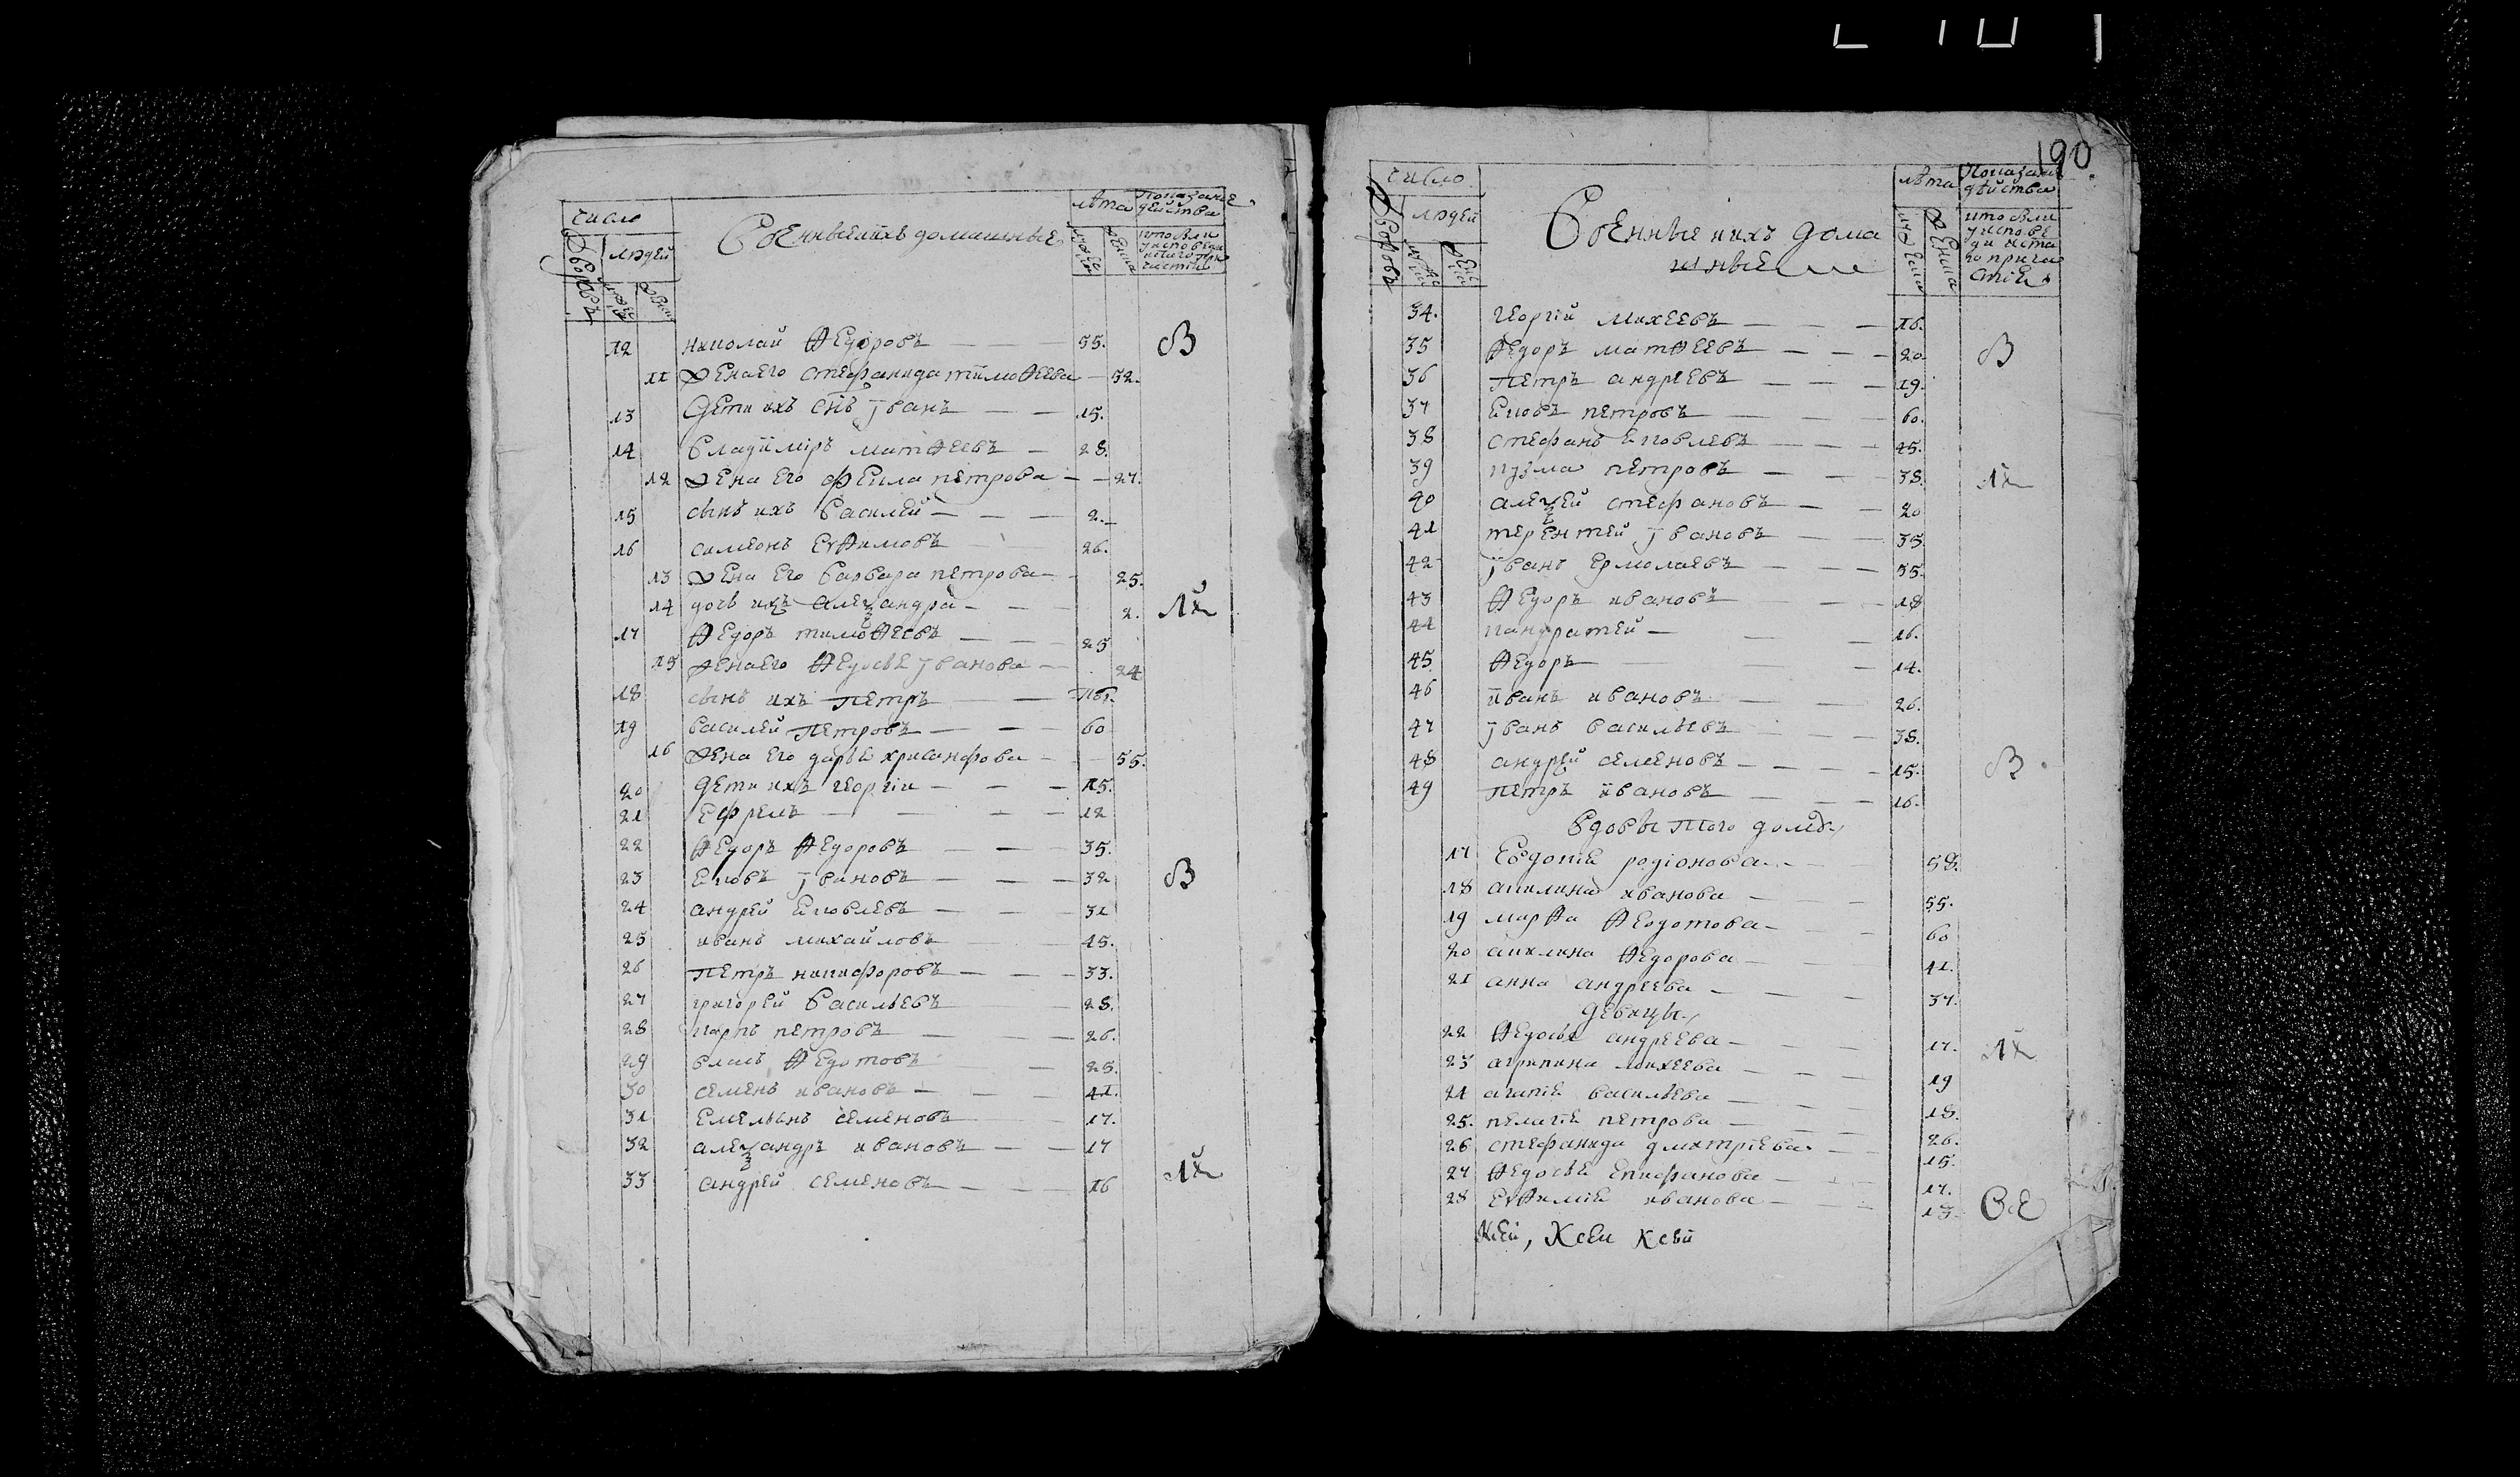 число
Дворовъ
людей
Военныеихъ домашные
лѣта
Показание действа
кто были
у исповеди
12 николай Ѳедоровъ — — 55.
11 Женаего стефанида тимоѲеева — 52.
13 Дети ихъ снъ Іванъ — — 15.
14 Владимiръ матѲеевъ — 28.
12 Жена Его фекла петрова — — 27.
15 сынъ ихъ Василей — — — 2.
16 симеонъ ЕѵѲимовъ — 26.
13 Жена Его варвара петрова — 25.
14 дочь ихъ Алеѯандра — — — 2.
17 Ѳедоръ тимоѲеевъ — — 25
15 женаего Ѳедосья Іванова — 24
18 сынъ ихъ Петръ — —
19 василей Петровъ — — — 60
16 Жена его дарья хрисанфова — — 55.
20 Дети ихъ георгiи — — — 15.
21 Ефремъ — — — — 12
22 Ѳедоръ Ѳедоровъ — — 35.
23 Яковъ Івановъ — — — 32
24 андрей Яковлевъ — — — 31
25 иванъ михайловъ — — 45.
26 Петръ никифоровъ — — — 33.
27 григорей Васильевъ — — 28.
28 карпъ петровъ — — 26.
29 власъ Ѳедотовъ — 25.
30 семенъ ивановъ — — — 41.
31 Емельянъ семеновъ — 17.
32 алеѯандръ ивановъ — — 17
33 андрей семеновъ — — — 16
190
число
Дворовъ
людей
Военные ихъ дома
шныя
лѣта
Показание
дѣйства
кто были
у исповеди
34. георгiй михеевъ — — — 16.
35 Ѳедоръ матѲеевъ — — — 20.
36 Петръ андреевъ — — — 19.
37 Яковъ петровъ — — — 60.
38 стефанъ Яковлевъ — — — 45.
39 кузма петровъ — — 38.
40 алеѯей стефановъ — — 20
41 терентей Івановъ — — 35.
42 Іванъ Ермолаевъ — — — 55.
43 Ѳедоръ ивановъ — — 18
44 панкратей — — — 16.
45 Ѳедоръ — — — 14.
46 иванъ ивановъ — — 26.
47 Іванъ васильевъ — — 38.
48 андрей семеновъ — — — — 15.
49 петръ ивановъ — — — 16.
Вдовы того дому
17 Евдокия родiонова — — 58.
18 акилина иванова — — — 55.
19 марѲа Ѳеодотова — — — 60
20 акилина Ѳедорова — — — 41.
21 анна андреева — — — 37.
девицы
22 Ѳедосья андреева — — — 17.
23 агрипина михеева — — — 19
24 агапiя васильева — — — 18.
25. пелагiя петрова — — — 26.
26 стефанида дмитрiева — — 15.
27 Ѳедосья Епифанова — — — 17.
28 ЕѵѲимiя иванова — — — 13.